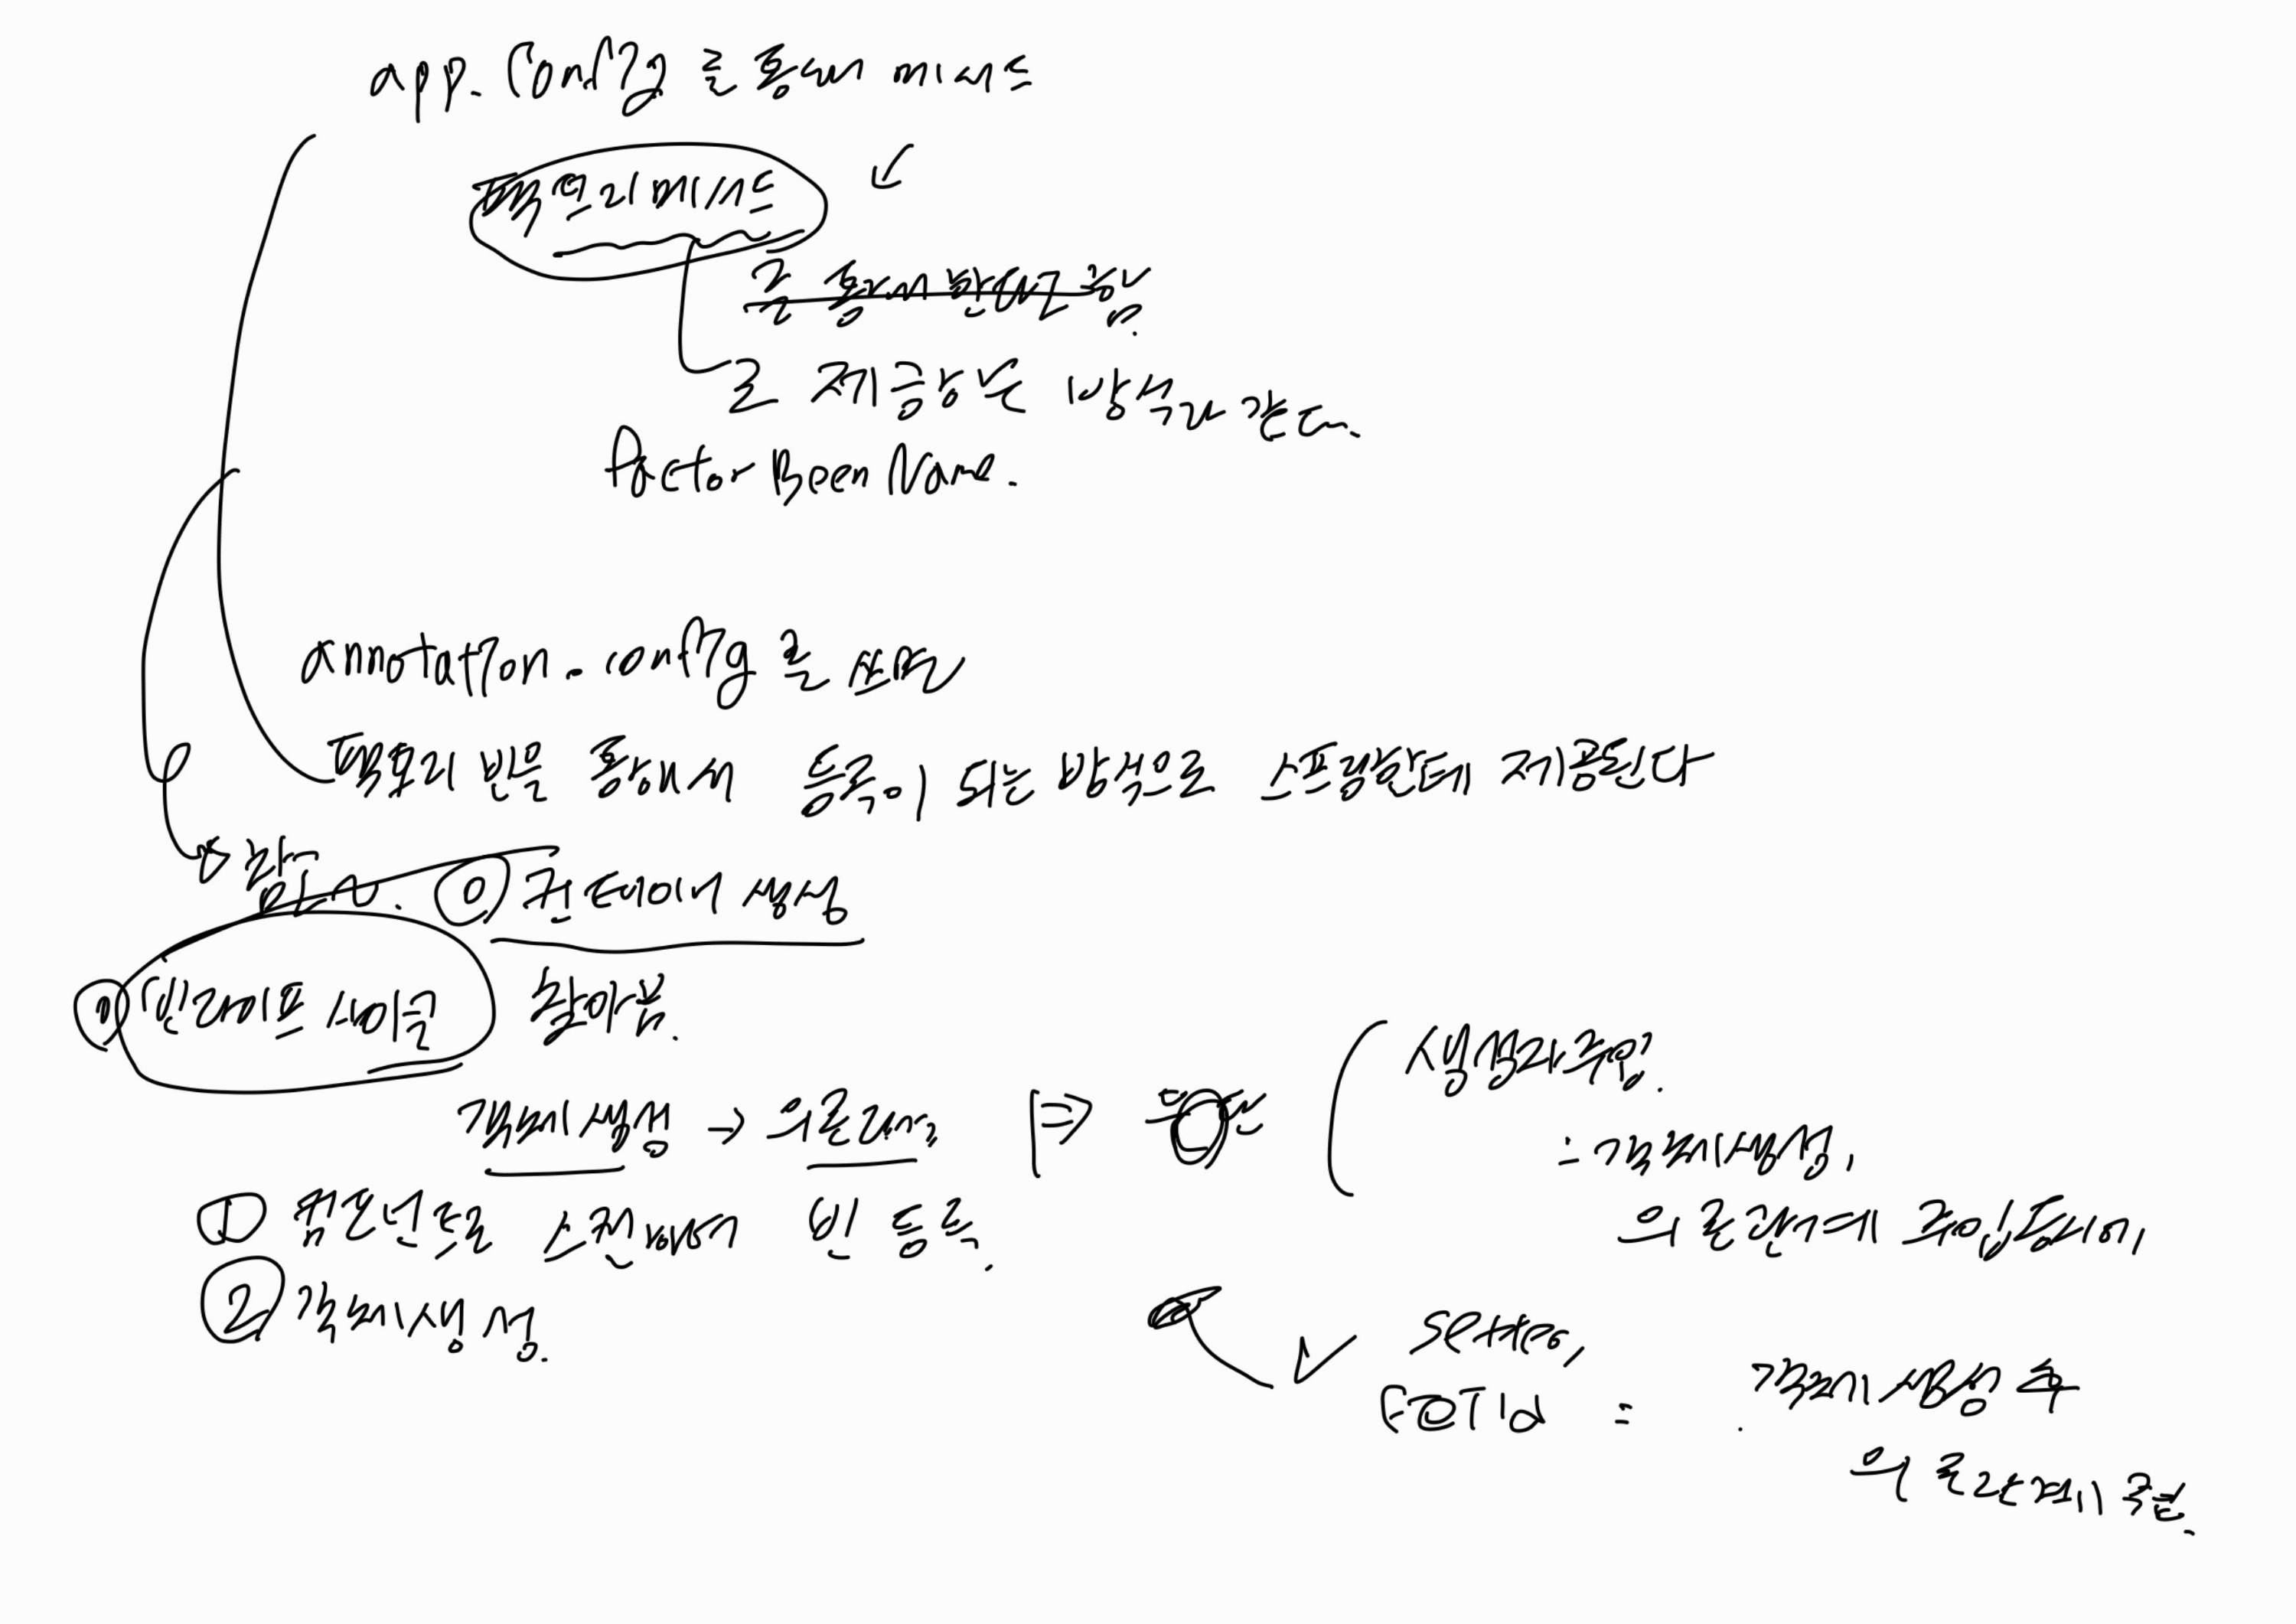 app. Config 를 통해 메서드
팩토리 메서드
를 통해 반환 함.
로 제공하는 방식과 같다.
factor Been Name.
annotation. config 를 보면
팩토리 빈을 통해서 등록이 되는 방식으로 스프링한테 제공된다
같다. ⓪ 컨테이너 생성
빈 라이프 사이클 찾아봄.
객체 생성 → 의존관계 ⇒
생성자 주입.
= 객체 생성,
의존관계 주입 동시에,
① 컴포넌트를 스캔해서 빈 등록.
② 객체 생성.
setter,
필드 주입 = 객체 생성 후
의존관계 주입.